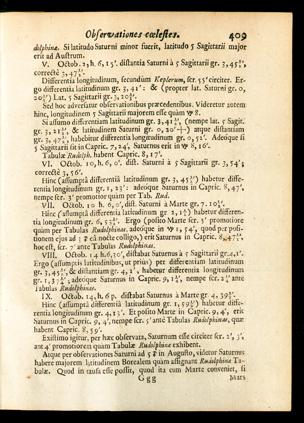 Observationes cœlestes. 409
dulphinæ. Si latitudo Saturni minor fuerit, latitudo 5 Sagittarii major
erit ad Austrum.
V. Octob. 2, h. 6, 15'. distantia Saturni à 5 Sagittarii gr. 3, 45½',
correctè 3, 47½'.
Differentia longitudinum, secundùm Keplerum, fer. 55' circiter. Er-
go differentia latitudinum gr. 3, 41' : & (propter lat. Saturni gr. 0,
Lat. 5 Sagittarii gr. 3,
Sed hoc adversatur observationibus præcedentibus. Videretur autem
hinc, longitudinem 5 Sagittarii majorem esse quàm ♑ 8.
Si assumo differentiam latitudinum gr. 3, (nempe lat. 5 Sagit.
gr. 3, & latitudinem Saturni gr. 0, atque distantiam
gr. 3, 47½', habebitur differentia longitudinum gr. 0, 52'. Adeóque si
5 Sagittarii sit in Capric. 7, 24', Saturnus erit in ♑ 8, 16'.
Tabulæ Rudolph. habent Capric. 8, 17'.
VI. Octob. 10, h. 6, 0'. dist. Saturni à 5 Sagittarii gr. 3, 54',
correctè 3, 56'.
Hinc (assumptâ differentiâ latitudinum gr. 3, 45½') habetur diffe-
rentia longitudinum gr. 1, 23' : adeóque Saturnus in Capric. 8, 47',
nempe scr. 3' promotior quàm per Tab. Rud.
VII. Octob. 10 h. 6, 0', dist. Saturni à Marte gr. 7. 10½'.
Hinc (assumptâ differentiâ latitudinum gr. 2, habetur differen-
tia longitudinum gr. 6, Ergo (posito Marte scr. 5' promotiore
quàm per Tabulas Rudolphinas, adeóque in ♑ 1, 54', quod per posi-
tionem ejus ad eâ nocte colligo,) erit Saturnus in Capric. 8, 47½',
hoc est, scr. 7' ante Tabulas Rudolphinas.
VIII. Octob. 14 h, 6, 30', distabat Saturnus à 5 Sagittarii gr. 4, 1'.
Ergo (assumptis latitudinibus, ut prius) per differentiam latitudinum
gr. 3, 45½', & distantiam gr. 4, 1', habetur differentia longitudinum
gr. 1, adeóque Saturnus in Capric. 9, nempe scr. ante
Tabulas Rudolphinæ.
IX. Octob. 14, h. 6 p. distabat Saturnus à Marte gr. 4, 39½'.
Hinc (assumptâ differentiâ latitudinum gr. 1, habetur diffe-
rentia longitudinum gr. 4, 13'. Et posito Marte in Capric. 9, 4', erit
Saturnus in Capric. 9, 4', nempe scr. 5' ante Tabulas Rudolphinas, quæ
habent Capric. 8, 59'.
Existimo igitur, per hæc observata, Saturnum esse circiter scr. 2', 3',
aut 4' promotiorem quam Tabulæ Rudolphinæ exhibent.
Atque per observationes Saturni ad 5 in Augusto, videtur Saturnus
habere majorem latitudinem Borealem quàm assignant Rudolphinæ Ta-
bulæ. Quod in causa esse possit, quod ita cum Marte conveniet, si
G g g Mars